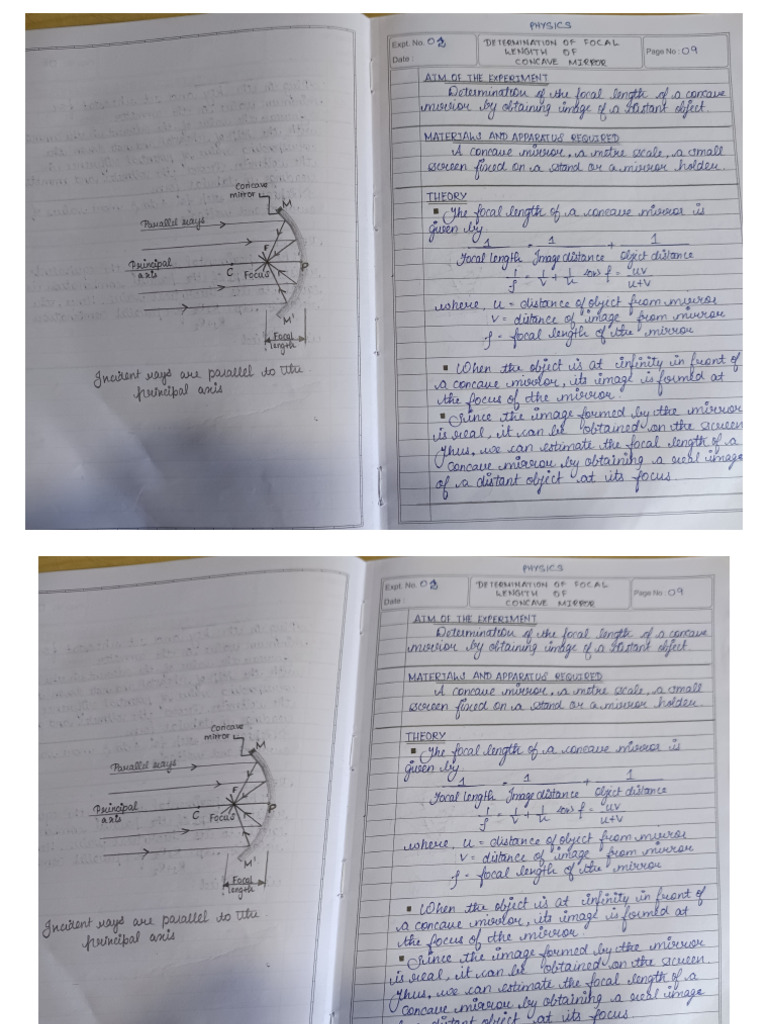 PHYSICS
Expt. No. 02
DETERMINATION OF FOCAL
LENGTH OF
CONCAVE MIRROR
Page No : 09
Date :
AIM OF THE EXPERIMENT
Determination of the focal length of a concave
mirror by obtaining image of a distant object.
MATERIALS AND APPARATUS REQUIRED
A concave mirror, a metre scale, a small
screen fixed on a stand or a mirror holder.
THEORY
▪ The focal length of a concave mirror is
given by
1/Focal length = 1/Image distance + 1/Object distance
1/f = 1/v + 1/u f = uv/u+v
where, u = distance of object from mirror
v = distance of image from mirror
f - focal length of the mirror
▪ When the object is at infinity in front of
a concave mirror, its image is formed at
the focus of the mirror.
▪ Since the image formed by the mirror
is real, it can be obtained on the screen
Thus, we can estimate the focal length of a
concave mirror by obtaining a real image
of a distant object at its focus.
Concave
mirror
M
Parallel rays
F
Principal
axis
C
Focus
P
M'
Focal
length
Incident rays are parallel to
principal axis
PHYSICS
Expt. No. 02
DETERMINATION OF FOCAL
LENGTH OF
CONCAVE MIRROR
Page No : 09
Date :
AIM OF THE EXPERIMENT
Determination of the focal length of a concave
mirror by obtaining image of a distant object.
MATERIALS AND APPARATUS REQUIRED
A concave mirror, a metre scale, a small
screen fixed on a stand or a mirror holder.
THEORY
▪ The focal length of a concave mirror is
given by
1/Focal length = 1/Image distance + 1/Object distance
1/f = 1/v + 1/u f = uv/u+v
where, u = distance of object from mirror
v = distance of image from mirror
f - focal length of the mirror
▪ When the object is at infinity in front of
a concave mirror, its image is formed at
the focus of the mirror.
▪ Since the image formed by the mirror
is real, it can be obtained on the screen
Thus, we can estimate the focal length of a
concave mirror by obtaining a real image
of a distant object at its focus.
Concave
mirror
M
Parallel rays
F
Principal
axis
C
Focus
P
M'
Focal
length
Incident rays are parallel to
principal axis